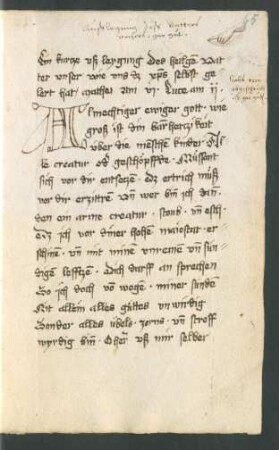 Ein kurtze vß legung des heilgen vat
ter vnser wie vns dz xps selbst ge
lert hat / mathei am vi · Luce am ii
Almechtiger ewiger gott · wie
groß ist din barhertzikeit
über die menschen kinder Al
le creatur vnd geschöpffde · müssent
sich vor dir entsetzen · dz ertrich müß
vor dir erzittren Vn wer bin ich dan
den ein arme creatur · stoub · vn esch
dz ich vor diner hohen maiestat · er
schinen · vn mit minen vnreinen vn sün
digen lefftzen · dich darff an sprechen
So ich doch von wegen · miner sünden
Nit allein alles guttes vnwirdig
Sonder alles übels · zorns · vn straff
wyrdig bin · O her vß mir selber